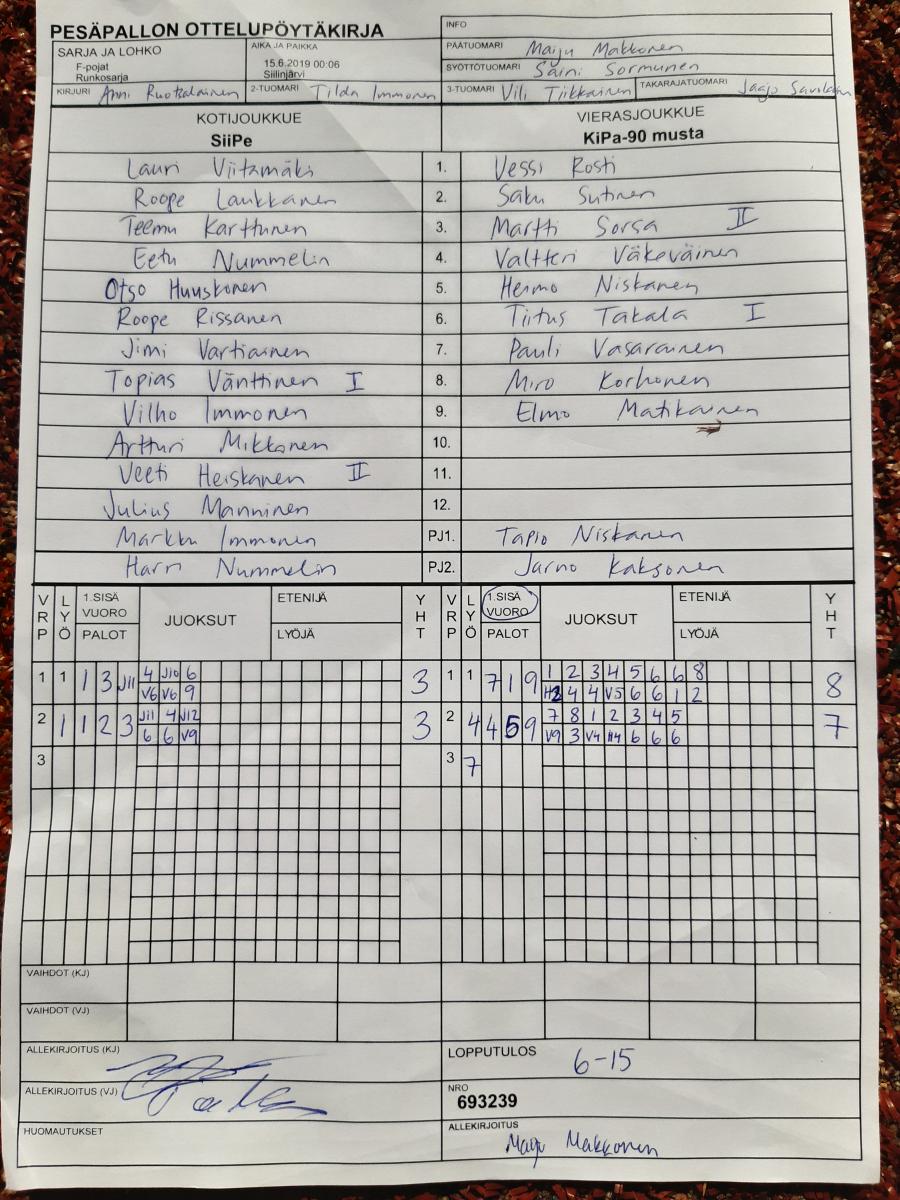 PESÄPALLON OTTELUPÖYTÄKIRJA
INFO
SARJA JA LOHKO
F-pojat
Runkosarja
AIKA JA PAIKKA
15.6.2019 00:06
Siilinjärvi
PÄÄTUOMARI Maiju Makkonen
SYÖTTÖTUOMARI Saini Sormunen
KIRJURI Anni Ruotsalainen 2-TUOMARI Tilda Immonen 3-TUOMARI Vili Tiikkainen TAKARAJATUOMARI Jaajo
KOTIJOUKKUE VIERASJOUKKUE
SiiPe KiPa-90 musta
Lauri Viitamäki 1. Vessi Rosti
Roope Laukkanen 2. Saku Sutinen
Teemu Karttunen 3. Martti Sorsa II
Eetu Nummelin 4. Valtteri Väkeväinen
Otso Huuskonen 5. Heimo Niskanen
Roope Rissanen 6. Tiitus Takala I
Jimi Vartiainen 7. Pauli Vasarainen
Topias Vänttinen I 8. Miro Korhonen
Vilho Immonen 9. Elmo Matikainen
Artturi Mikkonen 10.
Veeti Heiskanen II 11.
Julius Manninen 12.
Markku Immonen PJ1. Tapio Niskanen
Harri Nummelin PJ2. Jarno Kaksonen
VRP LYÖ 1.SISÄ VUORO PALOT JUOKSUT ETENIJÄ LYÖJÄ YHT VRP LYÖ 1.SISÄ VUORO PALOT JUOKSUT ETENIJÄ LYÖJÄ YHT
1 1 1 3 J11 4 J10 6 3 1 1 7 1 9 1 2 3 4 5 6 6 8 8
V6 V6 9 4 4 V5 6 6 1 2
2 1 1 2 3 J11 4 J12 3 2 4 4 5 9 7 8 1 2 3 4 5 7
6 6 V9 V9 3 V4 H4 6 6 6
3 3 7
VAIHDOT (KJ)
VAIHDOT (VJ)
ALLEKIRJOITUS (KJ)
LOPPUTULOS 6-15
ALLEKIRJOITUS (VJ)
NRO
693239
HUOMAUTUKSET
ALLEKIRJOITUS
Maiju Makkonen